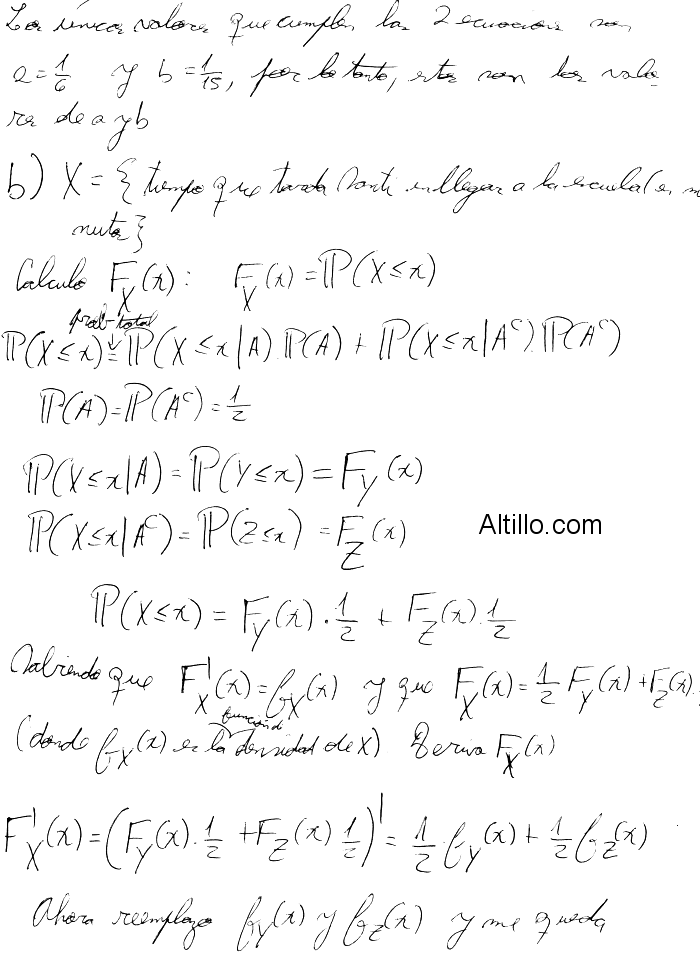 Los únicos valores que cumplen las 2 ecuaciones son
a = 1/6 y b = 1/15, por lo tanto, estos son los valo-
res de a y b
b) X = { tiempo que tarda Santi en llegar a la escuela (en mi
nutos }
Calculo F_X(x): F_X(x) = ℙ(X ≤ x)
prob. total
ℙ(X ≤ x) = ℙ(X ≤ x | A) ℙ(A) + ℙ(X ≤ x | A^c) ℙ(A^c)
ℙ(A) = ℙ(A^c) = 1/2
ℙ(X ≤ x | A) = ℙ(Y ≤ x) = F_Y(x)
ℙ(X ≤ x | A^c) = ℙ(Z ≤ x) = F_Z(x)
Altillo.com
ℙ(X ≤ x) = F_Y(x) · 1/2 + F_Z(x) · 1/2
Sabiendo que F'_X(x) = f_X(x) y que F_X(x) = 1/2 F_Y(x) + F_Z(x)
(donde f_X(x) es la función de densidad de X) Deriva F_X(x)
F'_X(x) = (F_Y(x) · 1/2 + F_Z(x) 1/2)' = 1/2 · f_Y(x) + 1/2 f_Z(x)
Ahora reemplazo f_Y(x) y f_Z(x) y me queda